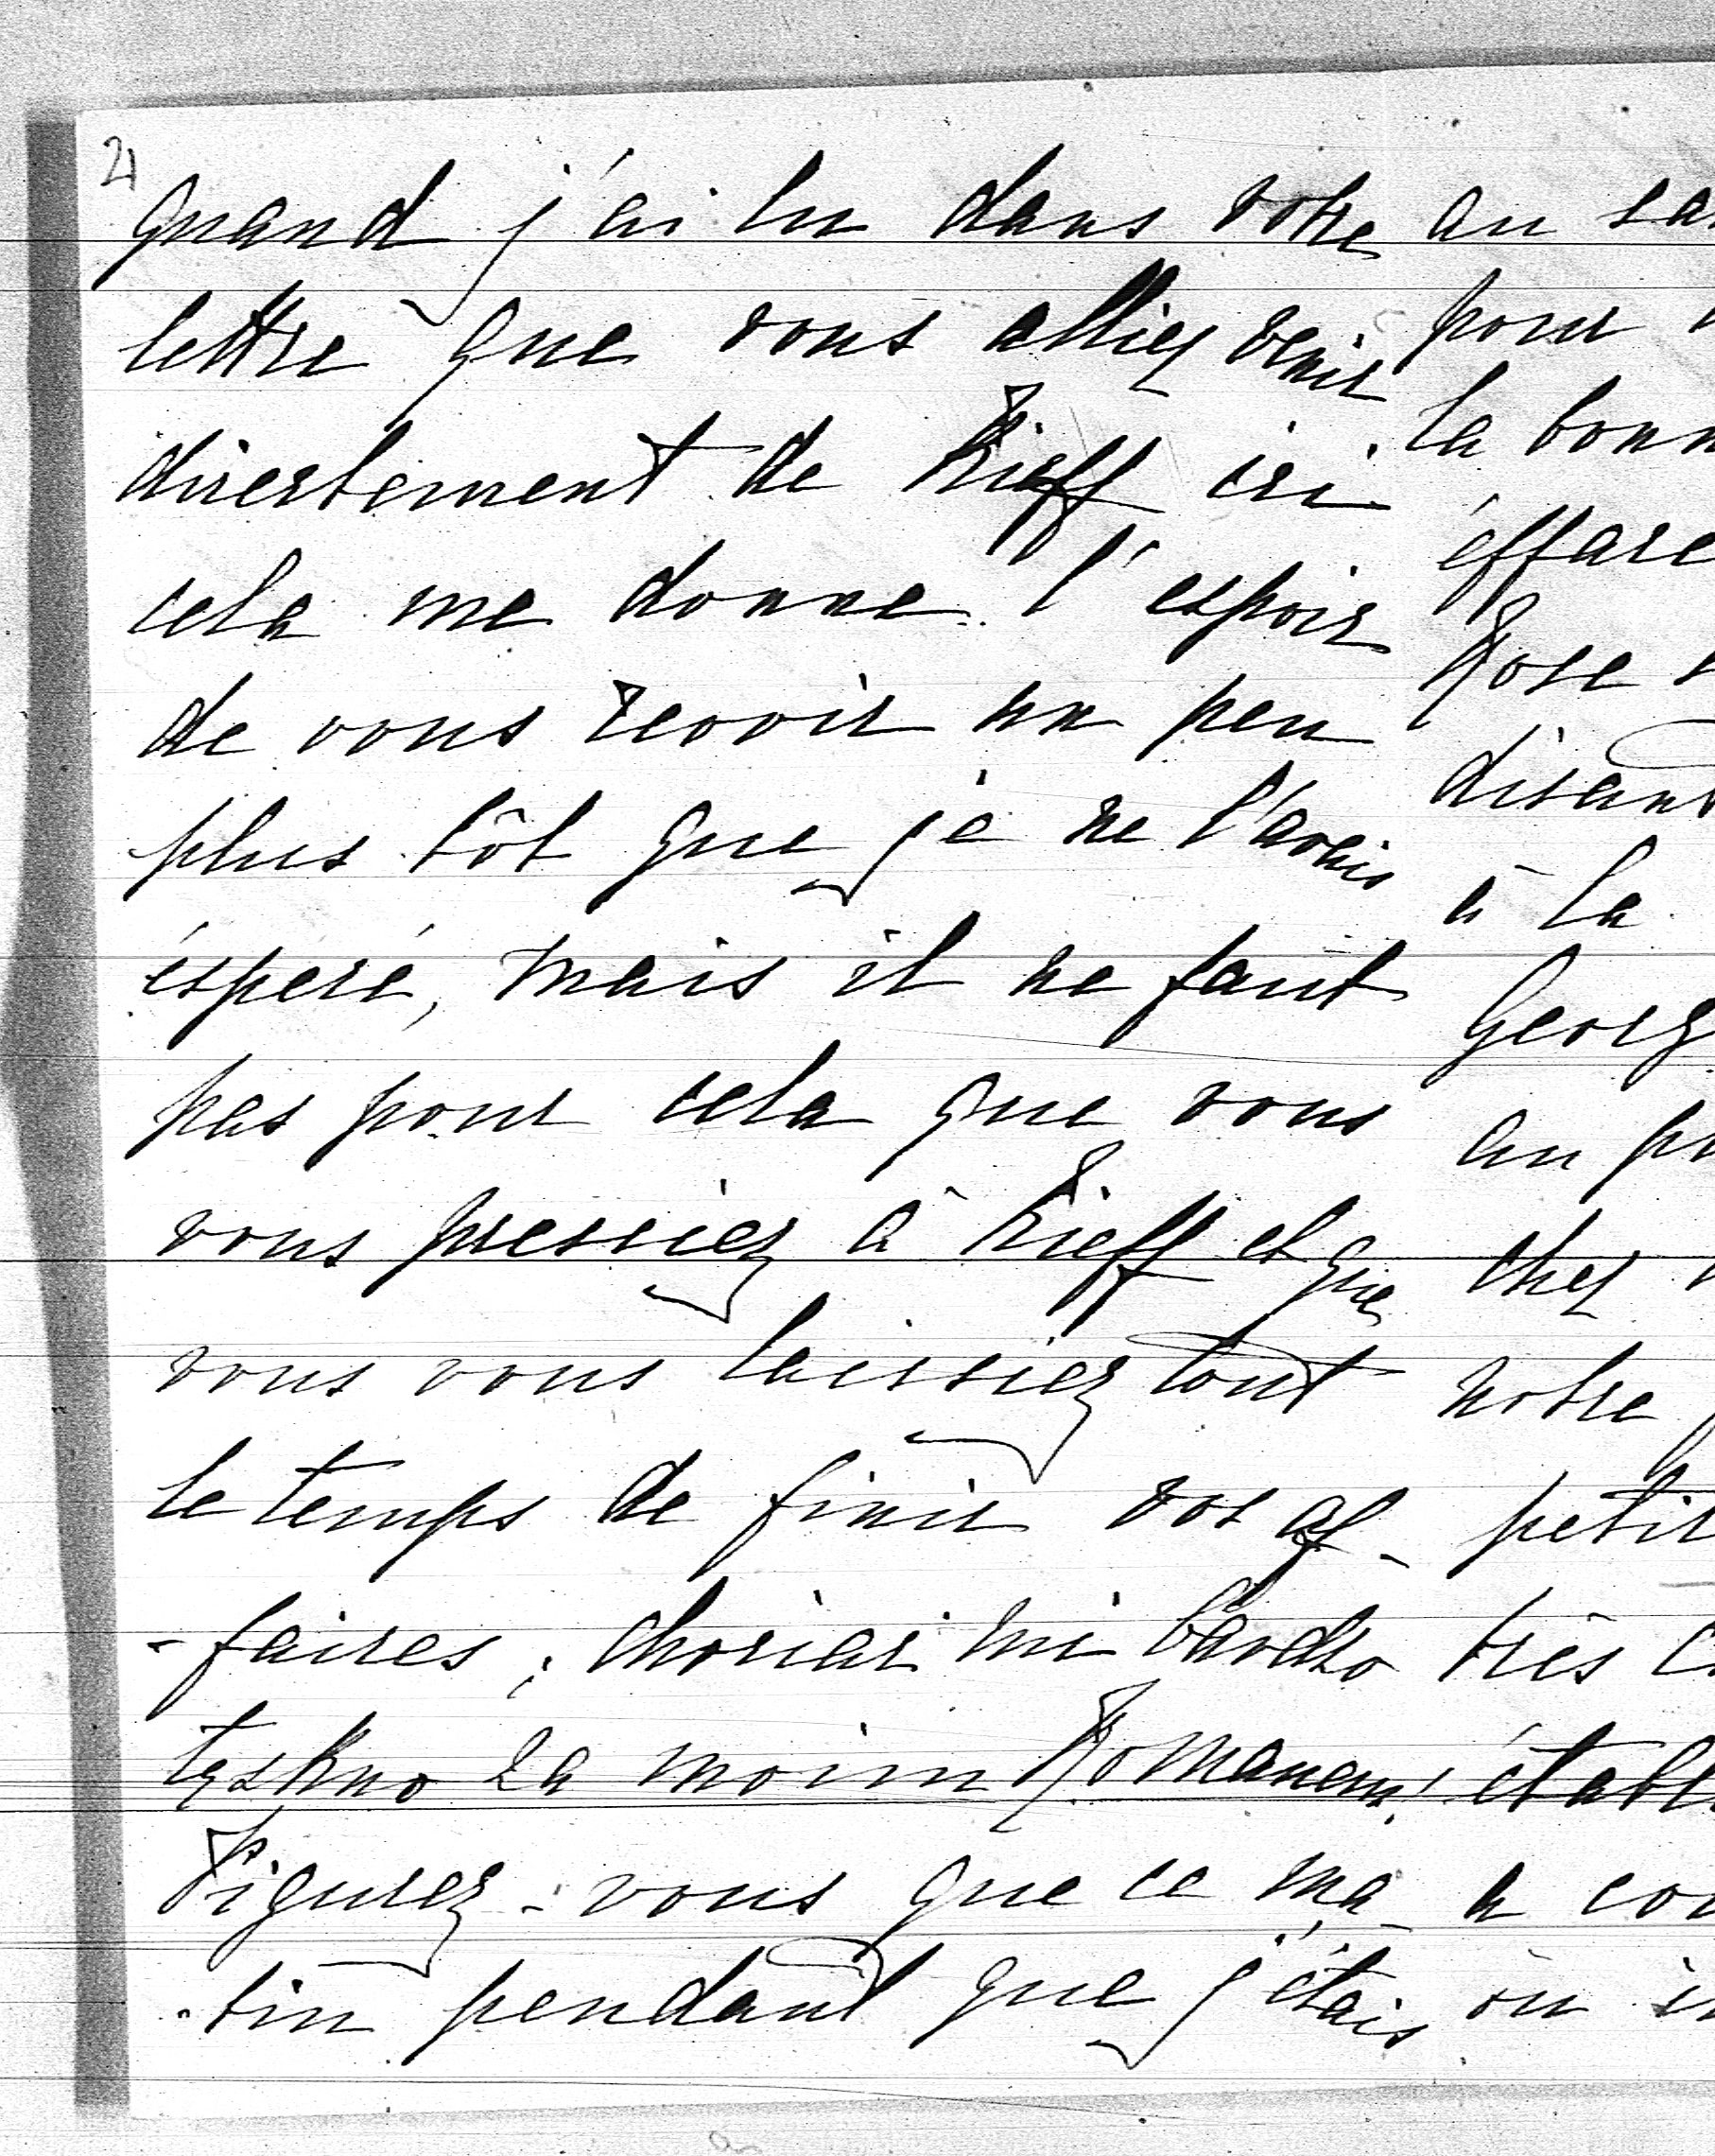 2)
quand j'ai lu dans votre
lettre que vous alliez venir
directement de Kieff ici
cela me donne l'espoir
de vous revoir un peu
plus tôt que je ne l'avais
éspéré, mais il ne faut
pas pour cela que vous
vous pressiez à Kieff et que
vous vous laissiez tout
le temps de finir vos af-
-faires,
Romanem!
Figurez-vous que ce ma-
-tin pendant que j'étais
au
pour
la
Rose
à la
au
chez
notre
très
a
où